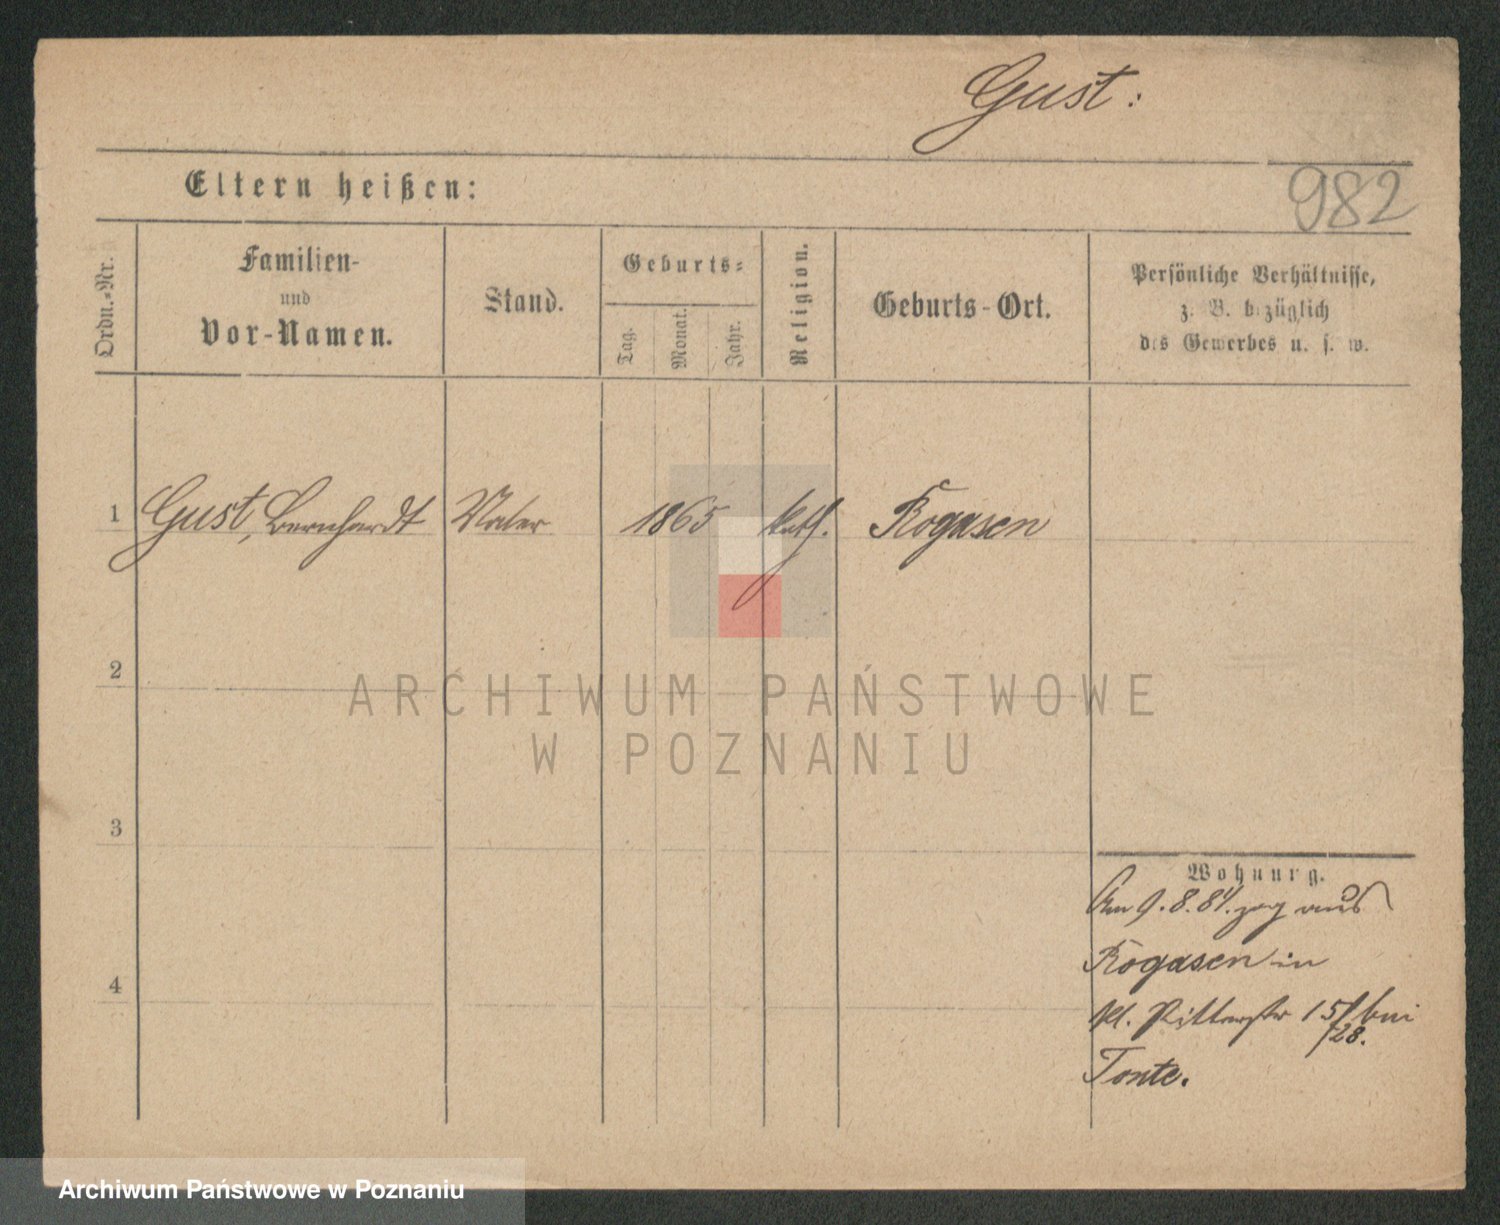 Gust:
982
Eltern heißen:
Ordn.=Nr.
Familien-
und
Vor-Namen.
Stand.
Geburts=
Tag.
Monat.
Jahr.
Religion.
Geburts-Ort.
Persönliche Verhältnisse,
z. B. bezüglich
des Gewerbes u. s. w.
1 Gust, Bernhardt Maler 1865 kath. Rogasen
2
3
4
Wohnung.
Am 9.8.84. zog aus
Rogasen in
kl. Ritterstr 15/ bei
/28.
Tonte.
ARCHIWUM PAŃSTWOWE
W POZNANIU
Archiwum Państwowe w Poznaniu